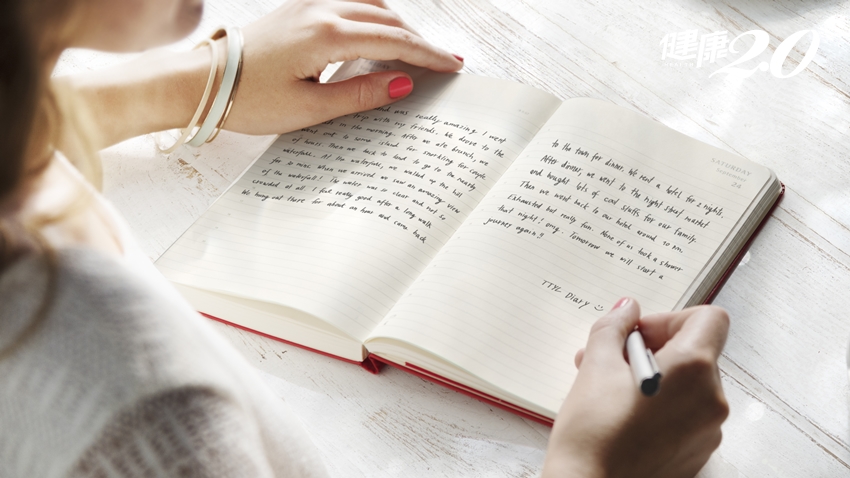 健康2.0
was really amazing. I went
trip with my friends. We drove to the
in the morning. After we ate brunch, we
to some island for snorkling for couple
of hours. Then we back to land to go to the nearby
waterfall. At the waterfall, we walked up the hill
for 20 mins. When we arrived we saw an amazing view
of the waterfall! The water was so clear and not so
crowded at all. I feel really good after a long walk.
We hung out there for about an hour and came back
SATURDAY
24
to the town for dinner. We rent a hotel for 2 nights,
After dinner, we went to the night street market
and bought lots of cool stuffs for our family.
Then we went back to our hotel around 10 pm.
Exhausted but really fun. None of us took a shower
that night! omg. Tomorrow we will start a
journey again!
TTYL Diary